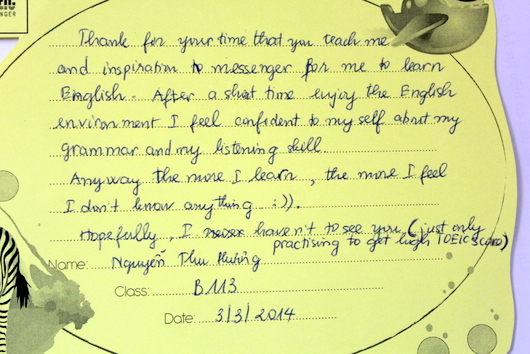 NGER
Thank for your time that you teach me
and inspiration to messenger for me to learn
English. After a short time enjoy the English
environment I feel confident to my self about my
grammar and my listening skill.
Anyway the more I learn, the more I feel
I don't know anything :)).
Hopefully, I never haven't to see you (just only
practising to get high TOEIC score)
Name: Nguyễn Thu Hường
Class: B113
Date: 3/3/2014